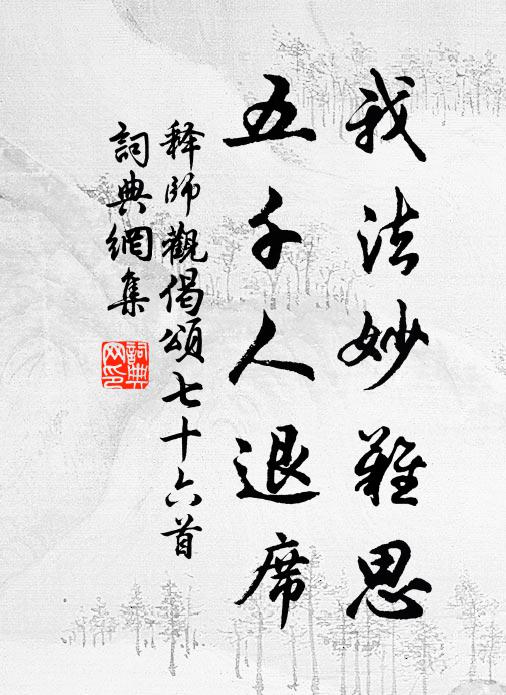 我法妙難思
五千人退席
释師觀偈頌七十六首
詞典網集
詞典网印